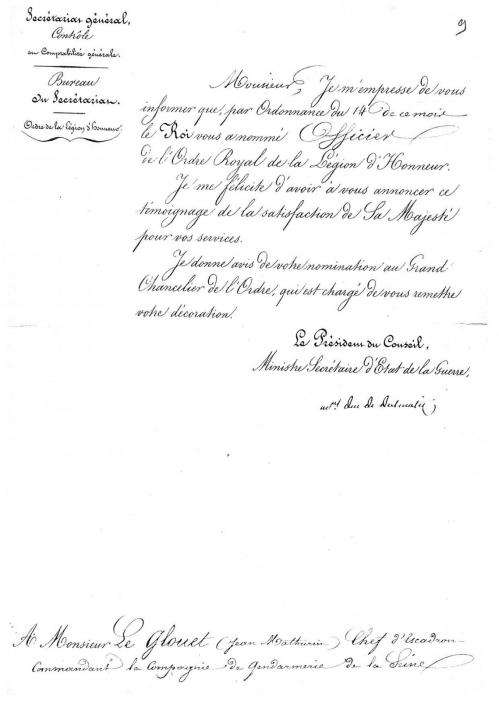 Secrétariat général,
Contrôle
et Comptabilité générale.
Bureau
du Secrétariat.
Ordre de la Légion d'Honneur.
9
Monsieur, Je m'empresse de vous
informer que, par Ordonnance du 14 de ce mois
le Roi vous a nommé Officier
de l'Ordre Royal de la Légion d'Honneur.
Je me félicite d'avoir à vous annoncer ce
témoignage de la satisfaction de Sa Majesté
pour vos services.
Je donne avis de votre nomination au Grand
Chancelier de l'Ordre, qui est chargé de vous remettre
votre décoration.
Le Président du Conseil,
Ministre Secrétaire d'Etat de la Guerre,
Mal Duc de Dalmatie
A Monsieur Le Glouet (Jean Mathurin) Chef d'Escadron
Commandant la Compagnie de Gendarmerie de la Seine